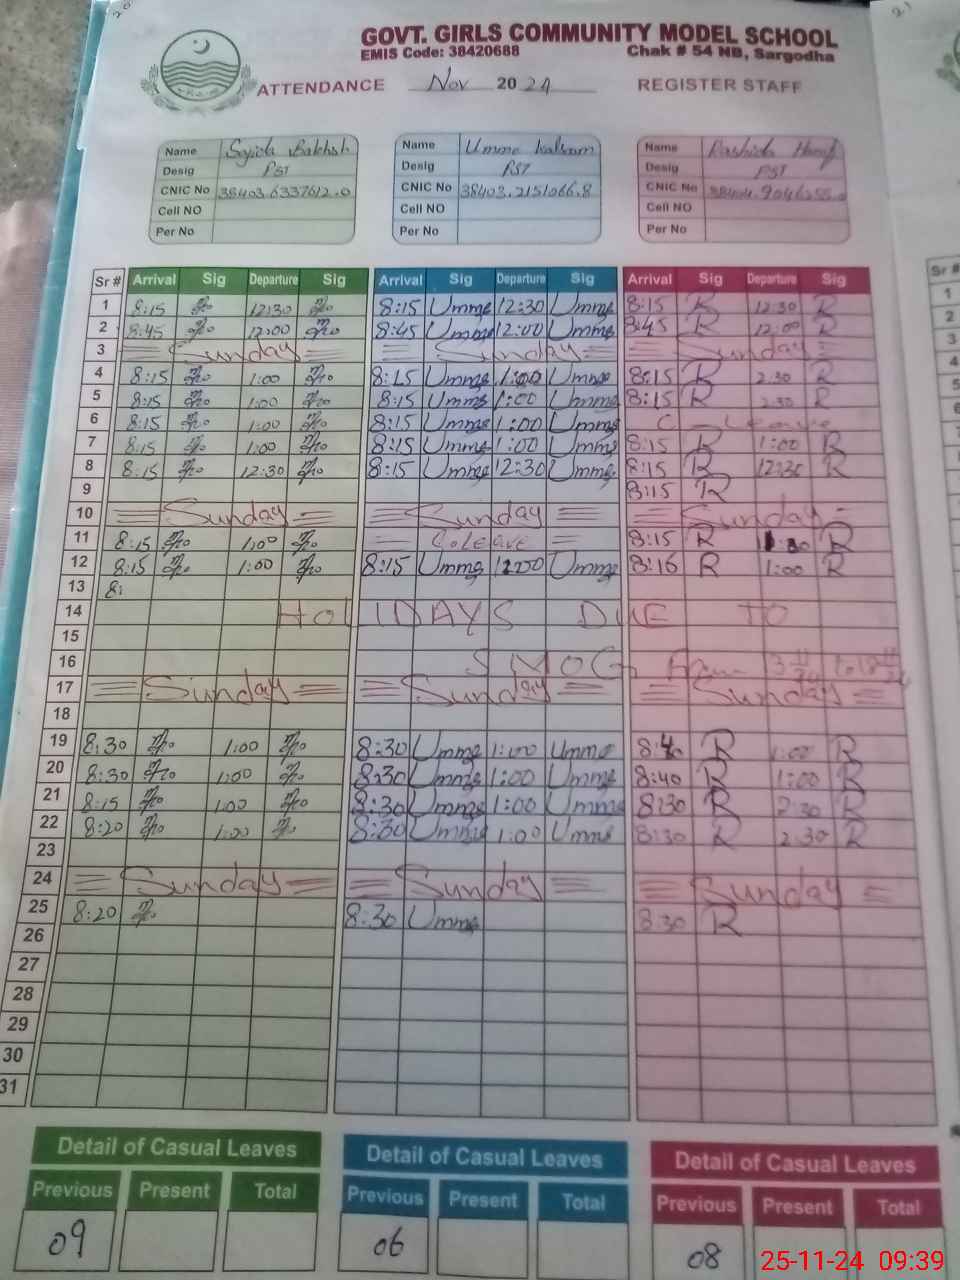 GOVT. GIRLS COMMUNITY MODEL SCHOOL
EMIS Code: 38420688 Chak # 54 NB, Sargodha
ATTENDANCE Nov 2024 REGISTER STAFF
Name Sajida Bakhsh Name Umme Kalsom Name Rashida Hanif
Desig PST Desig PST Desig PST
CNIC No 38403.6337612.0 CNIC No 38403.2151066.8 CNIC No
Cell NO Cell NO Cell NO
Per No Per No Per No
Sr # Arrival Sig Departure Sig Arrival Sig Departure Sig Arrival Sig Departure Sig
1 8:15 12:30 8:15 Umme 12:30 Umme 8:15 R 12:30 R
2 8:45 12:00 8:45 Umme 12:00 Umme 8:45 R 12:00 R
3 Sunday Sunday Sunday
4 8:15 1:00 8:15 Umme 1:00 Umme 8:15 R 2:30 R
5 8:15 1:00 8:15 Umme 1:00 Umme 8:15 R 2:30 R
6 8:15 1:00 8:15 Umme 1:00 Umme C - Leave
7 8:15 1:00 8:15 Umme 1:00 Umme 8:15 R 1:00 R
8 8:15 12:30 8:15 Umme 12:30 Umme 8:15 R 12:30 R
9 8:15 R
10 Sunday Sunday Sunday
11 8:15 1:00 C.leave 8:15 R R
12 8:15 1:00 8:15 Umme Umme 8:16 R 1:00 R
13 8:
14 HOLIDAYS DUE TO
15
16 SMOG From
17 Sunday Sunday Sunday
18
19 8:30 1:00 8:30 Umme 1:00 Umme 8:40 R 1:00 R
20 8:30 1:00 8:30 Umme 1:00 Umme 8:40 R 1:00 R
21 8:15 1:00 8:30 Umme 1:00 Umme 8:30 R 2:30 R
22 8:20 1:00 8:30 Umme 1:00 Umme 8:30 R 2:30 R
23
24 Sunday Sunday Sunday
25 8:20 8:30 Umme 8:30 R
26
27
28
29
30
31
Detail of Casual Leaves Detail of Casual Leaves Detail of Casual Leaves
Previous Present Total Previous Present Total Previous Present Total
09 06 08
25-11-24 09:39